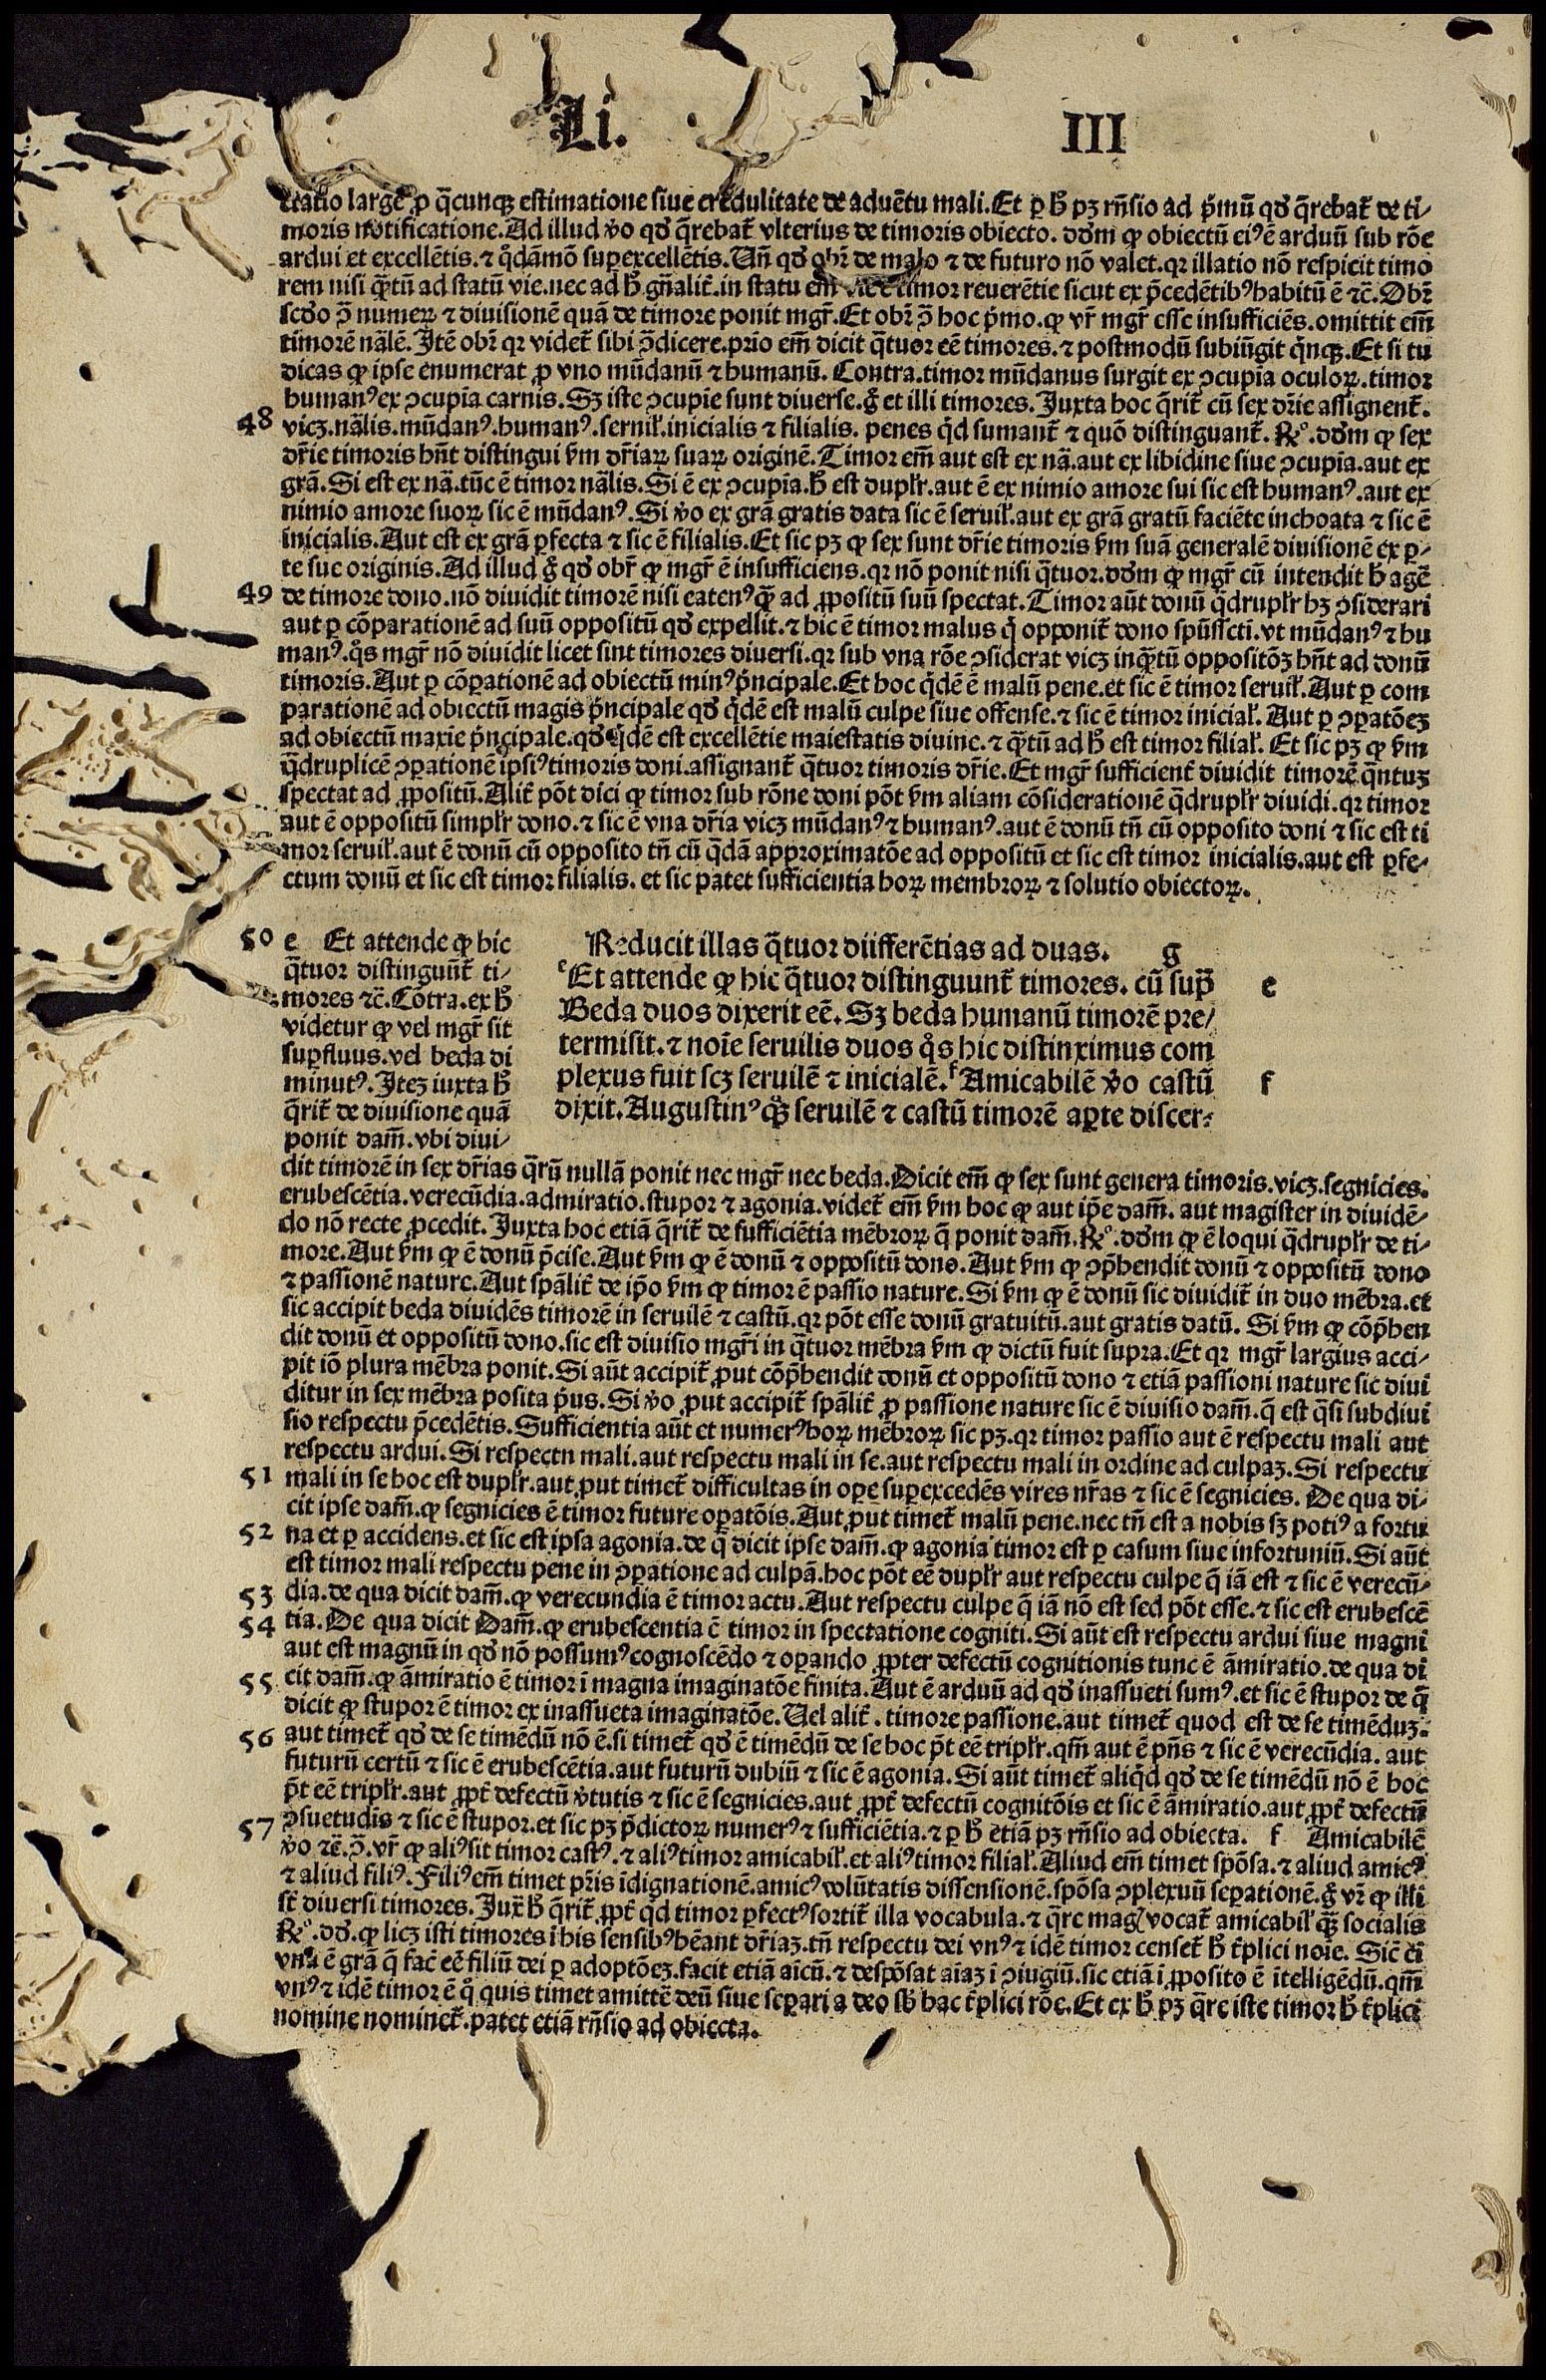 Li. III
ctatio large ꝓ q̄cunqꝫ estimatione siue credulitate de aduētu mali. Et ꝑ hͦ pꝫ rn̄sio ad pͥmū qd̕ q̄rebat̄ de ti/
moris notificatione. Ad illud v̊o qd̕ q̄rebat̄ vlterius de timoris obiecto. dd̕m ꝙ obiectū eiꝰ ē arduū sub rōe
ardui et excellētis. ⁊ qͦdāmō suꝑexcellētis. Un̄ qd̕ obr̄ de malo ⁊ de futuro nō valet. qr illatio nō respicit timo
rem nisi qᷓtū ad statū vie. nec ad hͦ gn̄alit̄. in statu em̄ timor reuerētie sicut ex p̄cedētibꝰ habitū ē ⁊c̄. Obr̄
scd̕o ꝯ̄ numeꝝ ⁊ diuisionē quā de timore ponit mgr̄. Et obr̄ ꝯ̄ hoc pͥmo. ꝙ vr̄ mgr̄ esse insufficiēs. omittit em̄
timorē nālē. Itē obr̄ qr videt̄ sibi ꝯ̄dicere. prio em̄ dicit q̄tuor eē timores. ⁊ postmodū subiūgit qͥnqꝫ. Et si tu
dicas ꝙ ipse enumerat ꝓ vno mūdanū ⁊ humanū. Contra. timor mūdanus surgit ex ꝯcupīa oculoꝝ. timor
humanꝰ ex ꝯcupīa carnis. Sꝫ iste ꝯcupīe sunt diuerse. gͦ et illi timores. Juxta hoc q̄rit̄ cū sex dr̄ie assignent̄.
48 vicꝫ. nālis. mūdanꝰ. humanꝰ. seruil̕. inicialis ⁊ filialis. penes qͥd sumant̄ ⁊ quō distinguant̄. Rͦ. dd̕m ꝙ sex
dr̄ie timoris hn̄t distingui ẜm dr̄iaꝝ suaꝝ originē. Timor em̄ aut est ex nā. aut ex libidine siue ꝯcupīa. aut ex
grā. Si est ex nā. tūc ē timor nālis. Si ē ex ꝯcupīa. hͦ est duplr̄. aut ē ex nimio amore sui sic est humanꝰ. aut ex
nimio amore suoꝝ sic ē mūdanꝰ. Si v̊o ex grā gratis data sic ē seruil̕. aut ex grā gratū faciēte inchoata ⁊ sic ē
inicialis. Aut est ex grā ꝑfecta ⁊ sic ē filialis. Et sic pꝫ ꝙ sex sunt dr̄ie timoris ẜm suā generalē diuisionē ex ꝑ/
te sue originis. Ad illud gͦ qd̕ obr̄ ꝙ mgr̄ ē insufficiens. qr nō ponit nisi q̄tuor. dd̕m ꝙ mgr̄ cū intendit hͦ agē
49 de timore dono. nō diuidit timorē nisi eatenꝰ qᷓ ad ꝓpositū suū spectat. Timor aūt donū q̄druplr̄ hꝫ ꝯsiderari
aut ꝑ cōparationē ad suū oppositū qd̕ expellit. ⁊ hic ē timor malus qͥ opponit̄ dono spūsscti. vt mūdanꝰ ⁊ hu
manꝰ. qͦs mgr̄ nō diuidit licet sint timores diuersi. qr sub vna rōe ꝯsiderat vicꝫ inqᷓtū oppositōꝫ hn̄t ad donū
timoris. Aut ꝑ cōꝑationē ad obiectū minꝰ pͥncipale. Et hoc qͥdē ē malū pene. et sic ē timor seruil̕. Aut ꝑ com
parationē ad obiectū magis pͥncipale qd̕ qͥdē est malū culpe siue offense. ⁊ sic ē timor inicial̕. Aut ꝑ ꝯꝑatōeꝫ
ad obiectū maxie pͥncipale. qd̕ qͥdē est excellētie maiestatis diuine. ⁊ qᷓtū ad hͦ est timor filial̕. Et sic pꝫ ꝙ ẜm
q̄druplicē ꝯꝑationē ipsiꝰ timoris doni. assignant̄ q̄tuor timoris dr̄ie. Et mgr̄ sufficient̄ diuidit timorē qᷓntuꝫ
spectat ad ꝓpositū. Alit̄ pōt dici ꝙ timor sub rōne doni pōt ẜm aliam cōsiderationē q̄druplr̄ diuidi. qr timor
aut ē oppositū simplr̄ dono. ⁊ sic ē vna dr̄ia vicꝫ mūdanꝰ ⁊ humanꝰ. aut ē donū tn̄ cū opposito doni ⁊ sic est ti
mor seruil̕. aut ē donū cū opposito tn̄ cū qͣdā approximatōe ad oppositū et sic est timor inicialis. aut est ꝑfe/
ctum donū et sic est timor filialis. et sic patet sufficientia hoꝝ membroꝝ ⁊ solutio obiectoꝝ.
50 e Et attende ꝙ hic
q̄tuor distingunt̄ ti/
mores ⁊c̄. Cōtra. ex hͦ
videtur ꝙ vel mgr̄ sit
suꝑfluus. vel beda di
minutꝰ. Iteꝫ iuxta hͦ
q̄rit̄ de diuisione quā
ponit dam̄. vbi diui/
Reducit illas q̄tuor diifferētias ad duas. g
e Et attende ꝙ hic q̄tuor distinguunt̄ timores. cū supͣ e
Beda duos dixerit eē. Sꝫ beda humanū timorē pre/
termisit. ⁊ noīe seruilis duos qͦs hic distinximus com
plexus fuit scꝫ seruilē ⁊ inicialē. f Amicabilē v̊o castū f
dixit. Augustinꝰ qͦqꝫ seruilē ⁊ castū timorē aꝑte discer:
dit timorē in sex dr̄ias q̄rū nullā ponit nec mgr̄ nec beda. Dicit em̄ ꝙ sex sunt genera timoris. vicꝫ. segnicies.
erubescētia. verecūdia. admiratio. stupor ⁊ agonia. videt̄ em̄ ẜm hoc ꝙ aut ip̄e dam̄. aut magister in diuidē/
do nō recte ꝓcedit. Juxta hoc etiā q̄rit̄ de sufficiētia mēbroꝝ q̄ ponit dam̄. Rͦ. dd̕m ꝙ ē loqui q̄druplr̄ de ti/
more. Aut ẜm ꝙ ē donū p̄cise. Aut ẜm ꝙ ē donū ⁊ oppositū dono. Aut ẜm ꝙ ꝯp̄hendit donū ⁊ oppositū dono
⁊ passionē nature. Aut spālit̄ de ip̄o ẜm ꝙ timor ē passio nature. Si ẜm ꝙ ē donū sic diuidit̄ in duo mēbra. et
sic accipit beda diuidēs timorē in seruilē ⁊ castū. qr pōt esse donū gratuitū. aut gratis datū. Si ẜm ꝙ cōp̄hen
dit donū et oppositū dono. sic est diuisio mgr̄i in q̄tuor mēbra ẜm ꝙ dictū fuit supra. Et qr mgr̄ largius acci/
pit iō plura mēbra ponit. Si aūt accipit̄ ꝓut cōp̄hendit donū et oppositū dono ⁊ etiā passioni nature sic diui
ditur in sex mēbra posita pͥus. Si v̊o ꝓut accipit̄ spālit̄ ꝓ passione nature sic ē diuisio dam̄. q̄ est qͣsi subdiui
sio respectu p̄cedētis. Sufficientia aūt et numerꝰ hoꝝ mēbroꝝ sic pꝫ. qr timor passio aut ē respectu mali aut
respectu ardui. Si respectn mali. aut respectu mali in se. aut respectu mali in ordine ad culpaꝫ. Si respectu
51 mali in se hoc est duplr̄. aut ꝓut timet̄ difficultas in oꝑe suꝑexcedēs vires nr̄as ⁊ sic ē segnicies. De qua di/
cit ipse dam̄. ꝙ segnicies ē timor future oꝑatōis. Aut ꝓut timet̄ malū pene. nec tn̄ est a nobis sꝫ potiꝰ a fortu
52 na et ꝑ accidens. et sic est ipsa agonia. de q̄ dicit ipse dam̄. ꝙ agonia timor est ꝑ casum siue infortuniū. Si aūt
est timor mali respectu pene in ꝯꝑatione ad culpā. hoc pōt eē duplr̄ aut respectu culpe q̄ iā est ⁊ sic ē verecū/
53 dia. de qua dicit dam̄. ꝙ verecundia ē timor actu. Aut respectu culpe q̄ iā nō est sed pōt esse. ⁊ sic est erubescē
54 tia. De qua dicit Dam̄. ꝙ erubescentia ē timor in spectatione cogniti. Si aūt est respectu ardui siue magni
aut est magnū in qd̕ nō possumꝰ cognoscēdo ⁊ oꝑando ꝓpter defectū cognitionis tunc ē āmiratio. de qua di
55 cit dam̄. ꝙ āmiratio ē timor ī magna imaginatōe finita. Aut ē arduū ad qd̕ inassueti sumꝰ. et sic ē stupor de q̄
dicit ꝙ stupor ē timor ex inassueta imaginatōe. Uel alit̄. timore passione. aut timet̄ quod est de se timēduꝫ.
56 aut timet̄ qd̕ de se timēdū nō ē. si timet̄ qd̕ ē timēdū de se hoc pōt eē triplr̄. qm̄ aut ē pn̄s ⁊ sic ē verecūdia. aut
futurū certū ⁊ sic ē erubescētia. aut futurū dubiū ⁊ sic ē agonia. Si aūt timet̄ aliqͥd qd̕ de se timēdū nō ē hoc
pōt eē triplr̄. aut ꝓpt̄ defectū v̓tutis ⁊ sic ē segnicies. aut ꝓpt̄ defectū cognitōis et sic ē āmiratio. aut ꝓpt̄ defectū
57 ꝯsuetudīs ⁊ sic ē stupor. et sic pꝫ p̄dictoꝝ numerꝰ ⁊ sufficiētia. ⁊ ꝑ hͦ etiā pꝫ rn̄sio ad obiecta. f Amicabilē
v̊o ⁊c̄. ꝯ̄. vr̄ ꝙ aliꝰ sit timor castꝰ. ⁊ aliꝰ timor amicabil̕. et aliꝰ timor filial̕. Aliud em̄ timet spōsa. ⁊ aliud amicꝰ
⁊ aliud filiꝰ. Filiꝰ em̄ timet pr̄is īdignationē. amicꝰ volūtatis dissensionē. spōsa ꝯplexuū seꝑationē. gͦ vr̄ ꝙ illi
st̄ diuersi timores. Jux̄ hͦ q̄rit̄ ꝓpt̄ qͥd timor ꝑfectꝰ sortit̄ illa vocabula. ⁊ q̄re magꝭ vocat̄ amicabil̕ qᷓ socialis
Rͦ. dd̕. ꝙ licꝫ isti timores ī his sensibꝰ hēant dr̄iaꝫ. tn̄ respectu dei vnꝰ ⁊ idē timor censet̄ hͦ t̄plici noīe. Sic̄ em̄
vna ē grā q̄ fac̄ eē filiū dei ꝑ adoptōeꝫ. facit etiā aīcū. ⁊ despōsat aīaꝫ ī ꝯiugiū. sic etiā ī ꝓposito ē ītelligēdū. qm̄
vnꝰ ⁊ idē timor ē qͦ quis timet amittē deū siue seꝑari a deo sb̕ hac t̄plici rōe. Et ex hͦ pꝫ q̄re iste timor hͦ t̄plici
nomine nominet̄. patet etiā rn̄sio ad obiecta.